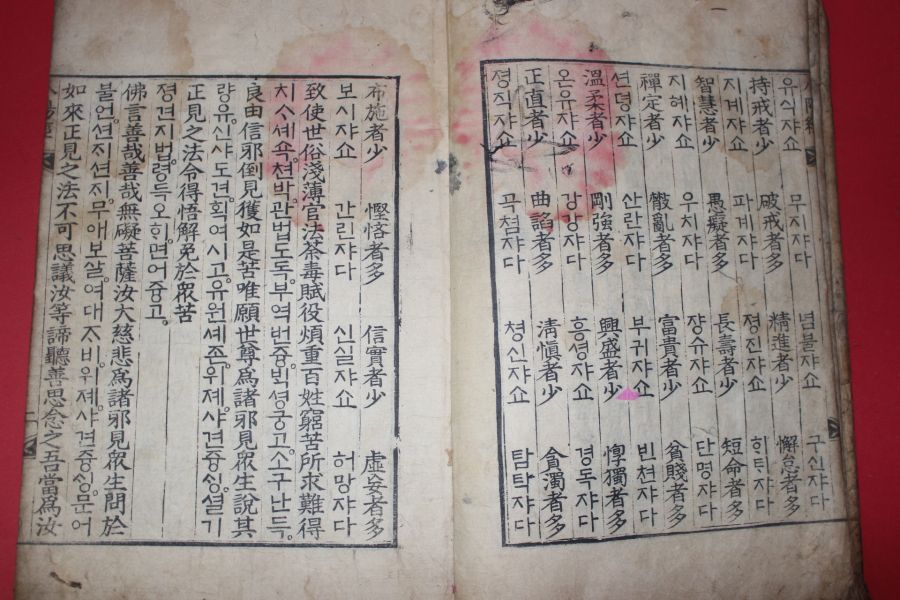 유식쟈쇼 무지쟈다 념불쟈쇼 구신쟈다
持戒者少 破戒者多 精進者少 懈怠者多
지계쟈쇼 파계쟈다 졍진쟈쇼 ᄒᆡᄐᆡ쟈다
智慧者少 愚癡者多 長壽者少 短命者多
지혜쟈쇼 우치쟈다 쟝슈쟈쇼 단명쟈다
禪定者少 散亂者多 富貴者少 貧賤者多
션뎡쟈쇼 산란쟈다 부귀쟈쇼 빈쳔쟈다
溫柔者少 剛強者多 興盛者少 惸獨者多
온유쟈쇼 강강쟈다 흥셩쟈쇼 경독쟈다
正直者少 曲諂者多 清愼者少 貪濁者多
졍직쟈쇼 곡쳠쟈다 쳥신쟈쇼 탐탁쟈다
布施者少 慳悋者多 信實者少 虛妄者多
보시쟈쇼 간린쟈다 신실쟈쇼 허망쟈다
致使世俗淺薄官法荼毒賦役煩重百姓窮苦所求難得
치ᄉᆞ셰쇽。쳔박。관법도독。부역번즁。ᄇᆡᆨ셩궁고。소구난득。
良由信邪倒見獲如是苦唯願世尊爲諸邪見衆生說其
량유신샤도견。획여시고。유원셰존。위졔샤견즁ᄉᆡᆼ。셜기
正見之法令得悟解免於衆苦
졍견지법。령득오ᄒᆡ。면어즁고。
佛言善哉善哉無礙菩薩汝大慈悲爲諸邪見衆生問於
불언션ᄌᆡ션ᄌᆡ。무애보살。여대ᄌᆞ비。위졔샤견즁ᄉᆡᆼ。문어
如來正見之法不可思議汝等諦聽善思念之吾當爲汝